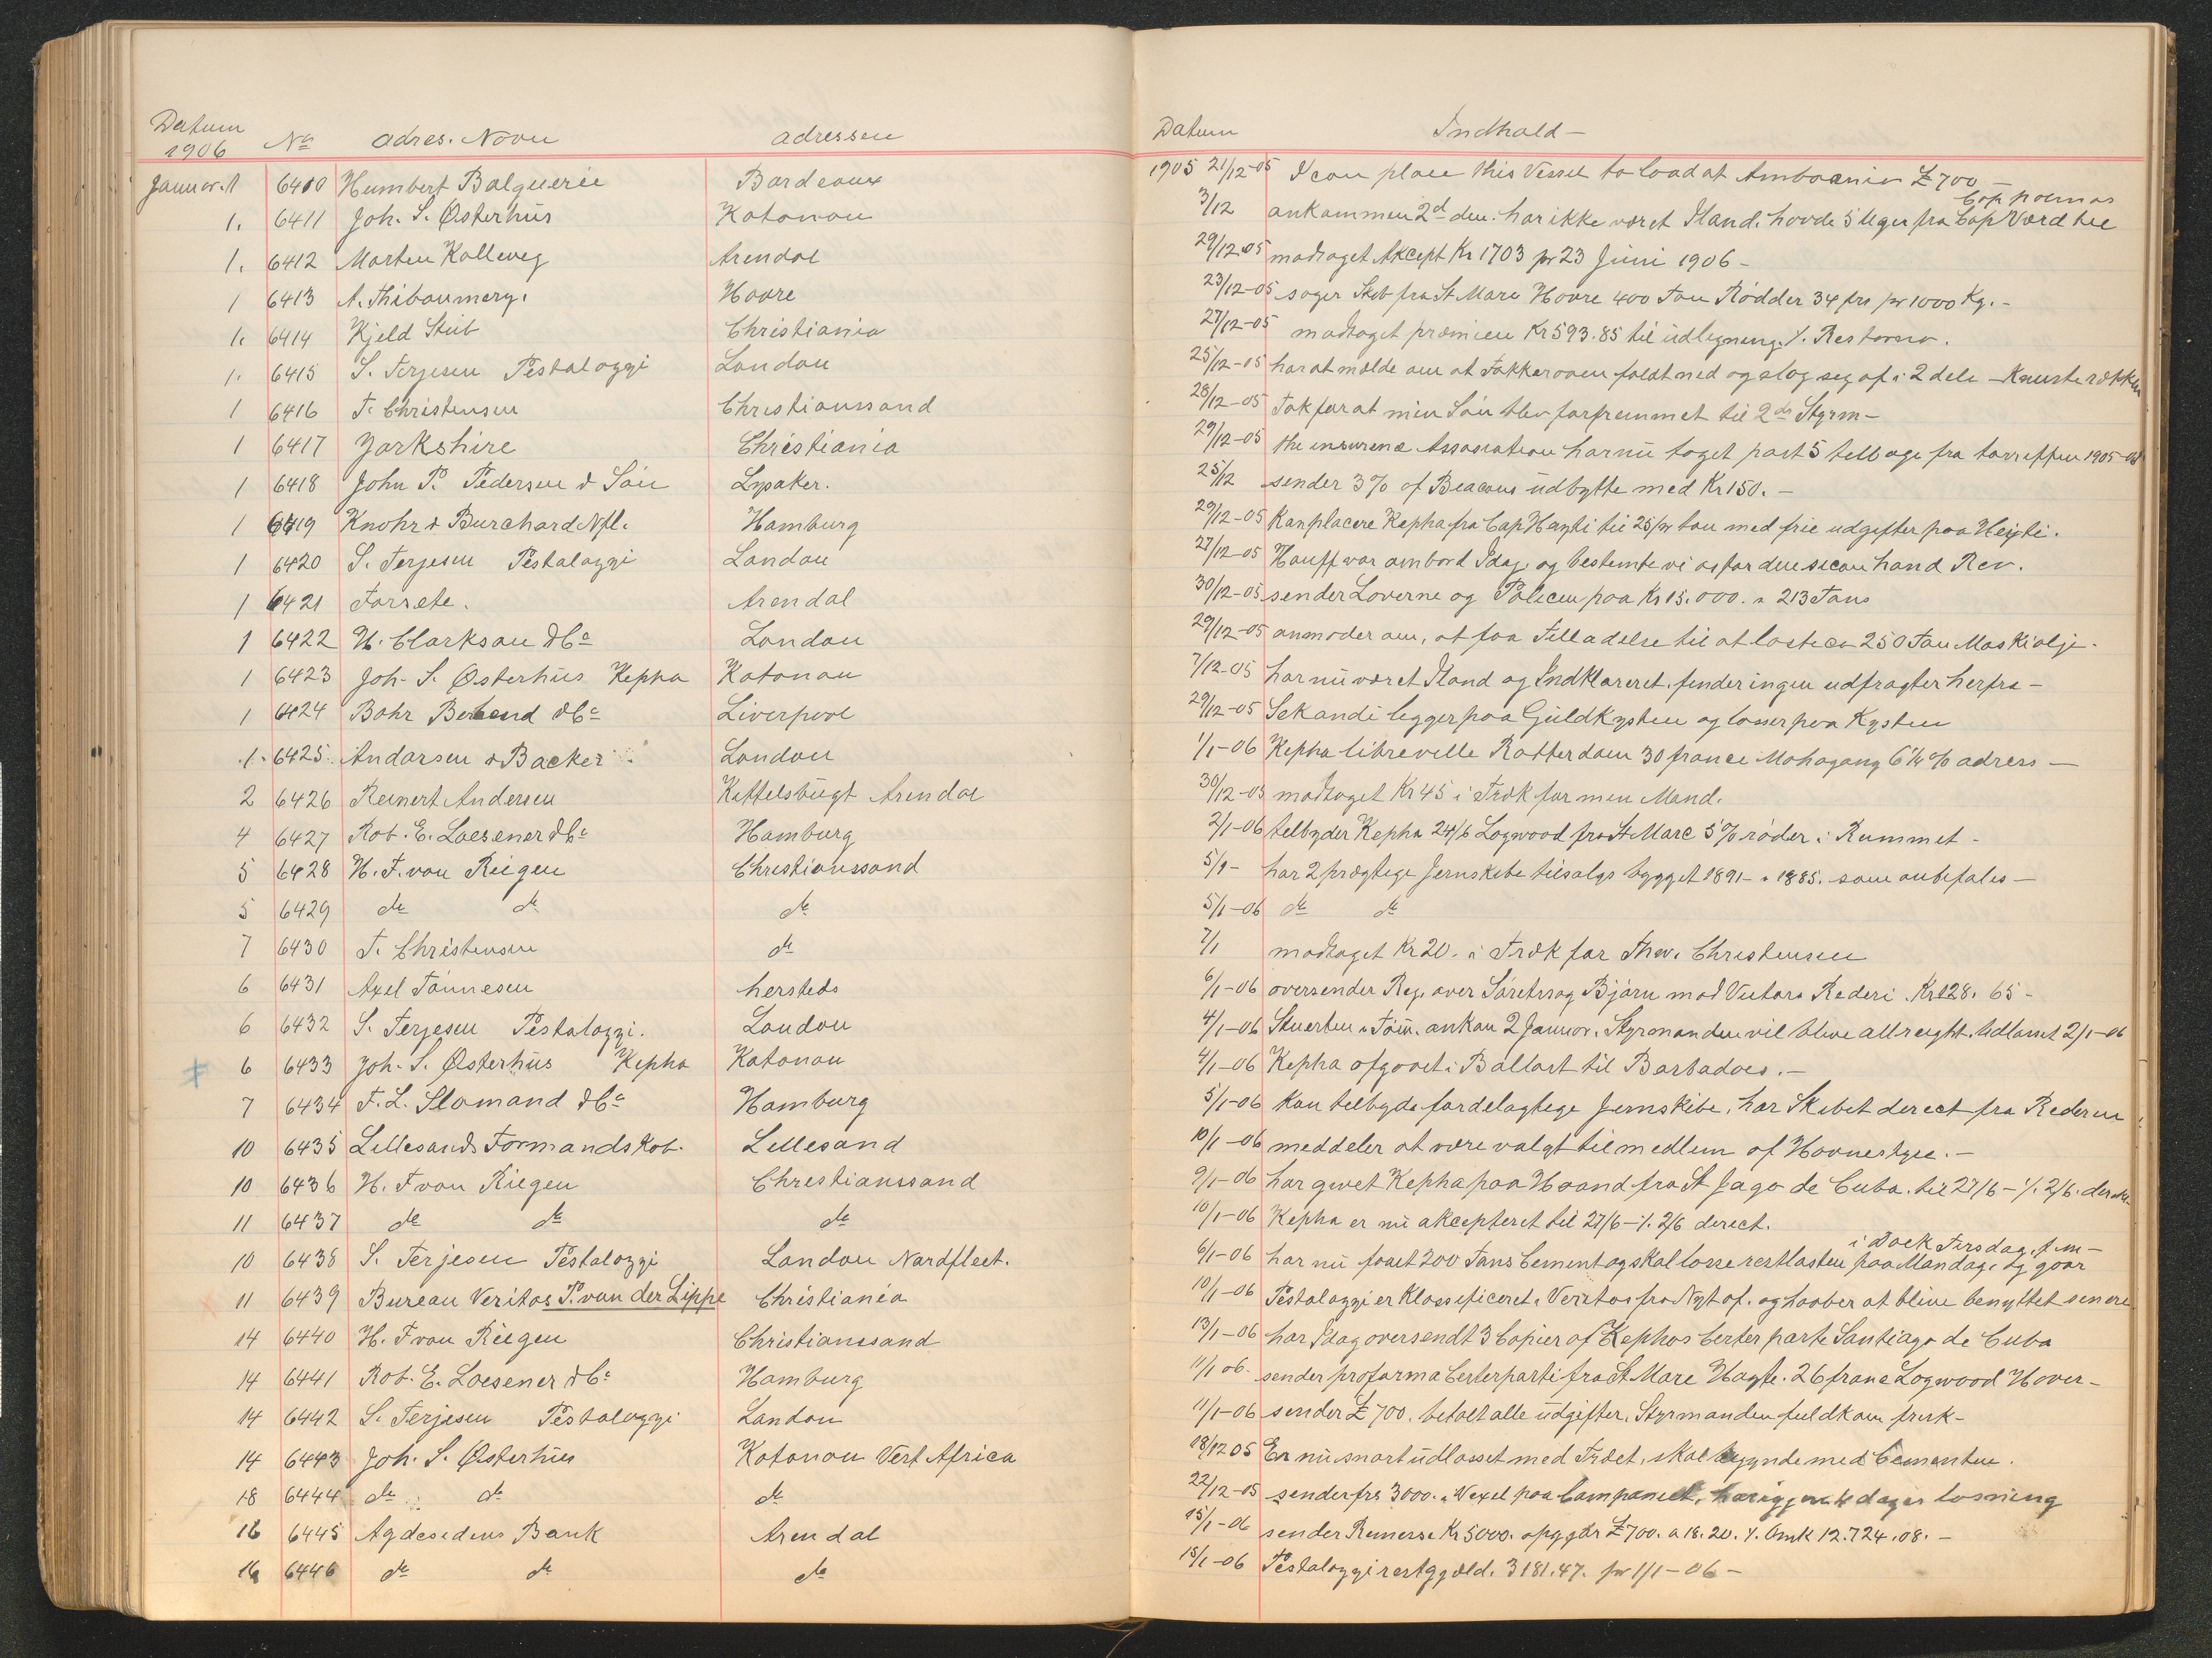 Datum 1906 No adres. Navn adressen
Januar. 1 6410 Humbert Balguerie Bordeaux
1. 6411 Joh. S. Østerhüs Kotonou
1. 6412 Morten Kalleveg Arendal
1 6413 A. Thiboumery. Havre
1. 6414 Kjeld Stüb Christiania
1. 6415 S. Terjesen Pestalozzi London
1 6416 T. Christensen Christianssand
1 6417 Yorkshire Christiania
1 6418 John P. Pedersen & Sön Lysaker.
1 6419 Knohr & Burchard Nfl. Hamburg
1 6420 S. Terjesen Pestalozzi London
1 6421 Forsete. Arendal
1 6422 H. Clarkson & Co London
1 6423 Joh. S. Østerhüs Kepha Kotonou
1 6424 Bahr Behrend & Co Liverpool
1. 6425 Andorsen & Backer London
2 6426 Reinert Andersen Kittelsbugt Arendal
4 6427 Rob. E. Loesener & Co Hamburg
5 6428 H. F. von Riegen Christianssand
5 6429 do do do
7 6430 T. Christensen do
6 6431 Axel Tönnesen hersteds
6 6432 S. Terjesen Pestalozzi. London
6 6433 Joh. S. Østerhüs Kepha Kotonou
7 6434 F. L. Slomand & Co Hamburg
10 6435 Lillesands Formandskob. Lillesand
10 6436 H. F von Riegen Christianssand
11 6437 do do do
10 6438 S. Terjesen Pestalozzi London Nordfleet.
11 6439 Bureau Veritas P. van der Lippe Christiania
14 6440 H. F von Riegen Christianssand
14 6441 Rob. E. Loesener & Co Hamburg
14 6442 S. Terjesen Pestalozzi London
14 6443 Joh. S. Østerhüs Kotonou Vest Africa
18 6444 do do do
16 6445 Agdesidens Bank Arendal
16 6446 do do do
Datum Indhold -
1905 21/12-05 I can place this Vessel to load at £700 -
Cap
3/12 ankommen 2d den. har ikke været Iland. havde 5 uger fra Cap Værd til
29/12 05 modtaget Akcept Kr 1703 pr 23 Juni 1906 -
23/12-05 søger Skib fra St Marc Havre 400 Ton Rødder 34 frs pr 1000 Kg. -
27/12-05 modtaget præmien Kr 593.85 til üdlegning
25/12-05 har at melde om at Fokkeraaen faldt ned og slog seg af i 2 dele - Knuste rækken
28/12-05 Tak for at min Sön blev forfremmet til 2den Styrm -
29/12-05 the insurence Assosiation har nü taget part 5 tilbage fra 1905-06
25/12 sender 3% of Beacons üdbytte med Kr 150. -
29/12-05 Kan placere Kepha fra Cap Hayti til 25/ pr ton med frie udgifter paa Heyti.
27/12-05 Hauff var ombord Idag. og bestemte vi os for den secon hand Rev.
30/12-05 sender Loverne og Policen paa Kr 15.000. a 213 Tons
29/12-05 anmoder om, at faa Tilladelse til at laste ca 250 Ton Maskiolje -
7/12-05 har nü været Iland og Indklareret. finder ingen udfragter herfra -
29/12-05 Sekondi ligger paa Güldkysten og losser paa Kysten
1/1-06 Kepha libreville Rotterdam 30 francs Mahogany 6¼ % adress -
30/12-05 modtaget Kr 45 i Træk for min Mand.
2/1-06 tilbyder Kepha 24/6 Logwood fra St Marc 5% röder i Rummet -
5/1- har 2 prægtige Jernskibe tilsalgs bygget 1891 - 1885. som anbefales -
5/1-06 do do
7/1 modtaget Kr 20. i Træk for Thor. Christensen
6/1-06 oversender Reg. over Søretssag Bjørn mod Rederi. Kr 128. 65 -
4/1-06 Stuerten ankom 2 Januar. Styrmanden vil blive allreight. Udlosset 2/1-06
4/1-06 Kepha afgaaet i Ballast til Barbadoes. -
5/1-06 kan tilbyde fordelagtige Jernskibe, har Skibet direct fra Rederen
10/1-06 meddeler at være valgt til medlem af Havnestyre. -
9/1-06 har givet Kepha paa Haand fra St Jago de Cuba. til 27/6 - ./. 2/6. direkt
10/1-06 Kepha er nü akcepteret til 27/6 - ./. 2/6 direct.
i Dock Tirsdag. f m -
6/1-06 har nü faaet 200 Tons Cement og skal losse restlasten paa Mandag. og gaar
10/1-06 Pestalozzi er Klassificeret i Veritas fra Nyt af. og haaber at blive benyttet senere
13/1-06 har Idag oversendt 3 Copier af Kephas Certeparte Santiago de Cuba
11/1 06. sender proforma Certeparti fra St Marc Hayte. 26 franc Logwood Havre -
11/1-06 sender £ 700. betalt alle üdgifter. Styrmanden fuldkom frisk -
18/12 05 Er nü snart üdlosset med Træet, skal begynde med Cementen.
22/12-05 sender frs 3000. i Vexel paa Companiet, dages losning
15/1-06 sender Remesse Kr 5000. opgjør £ 700. a 18. 20. ./. Omk 12.724.08. -
15/1-06 Pestalozzi restgjæld. 3181.47. pr 1/1-06 -